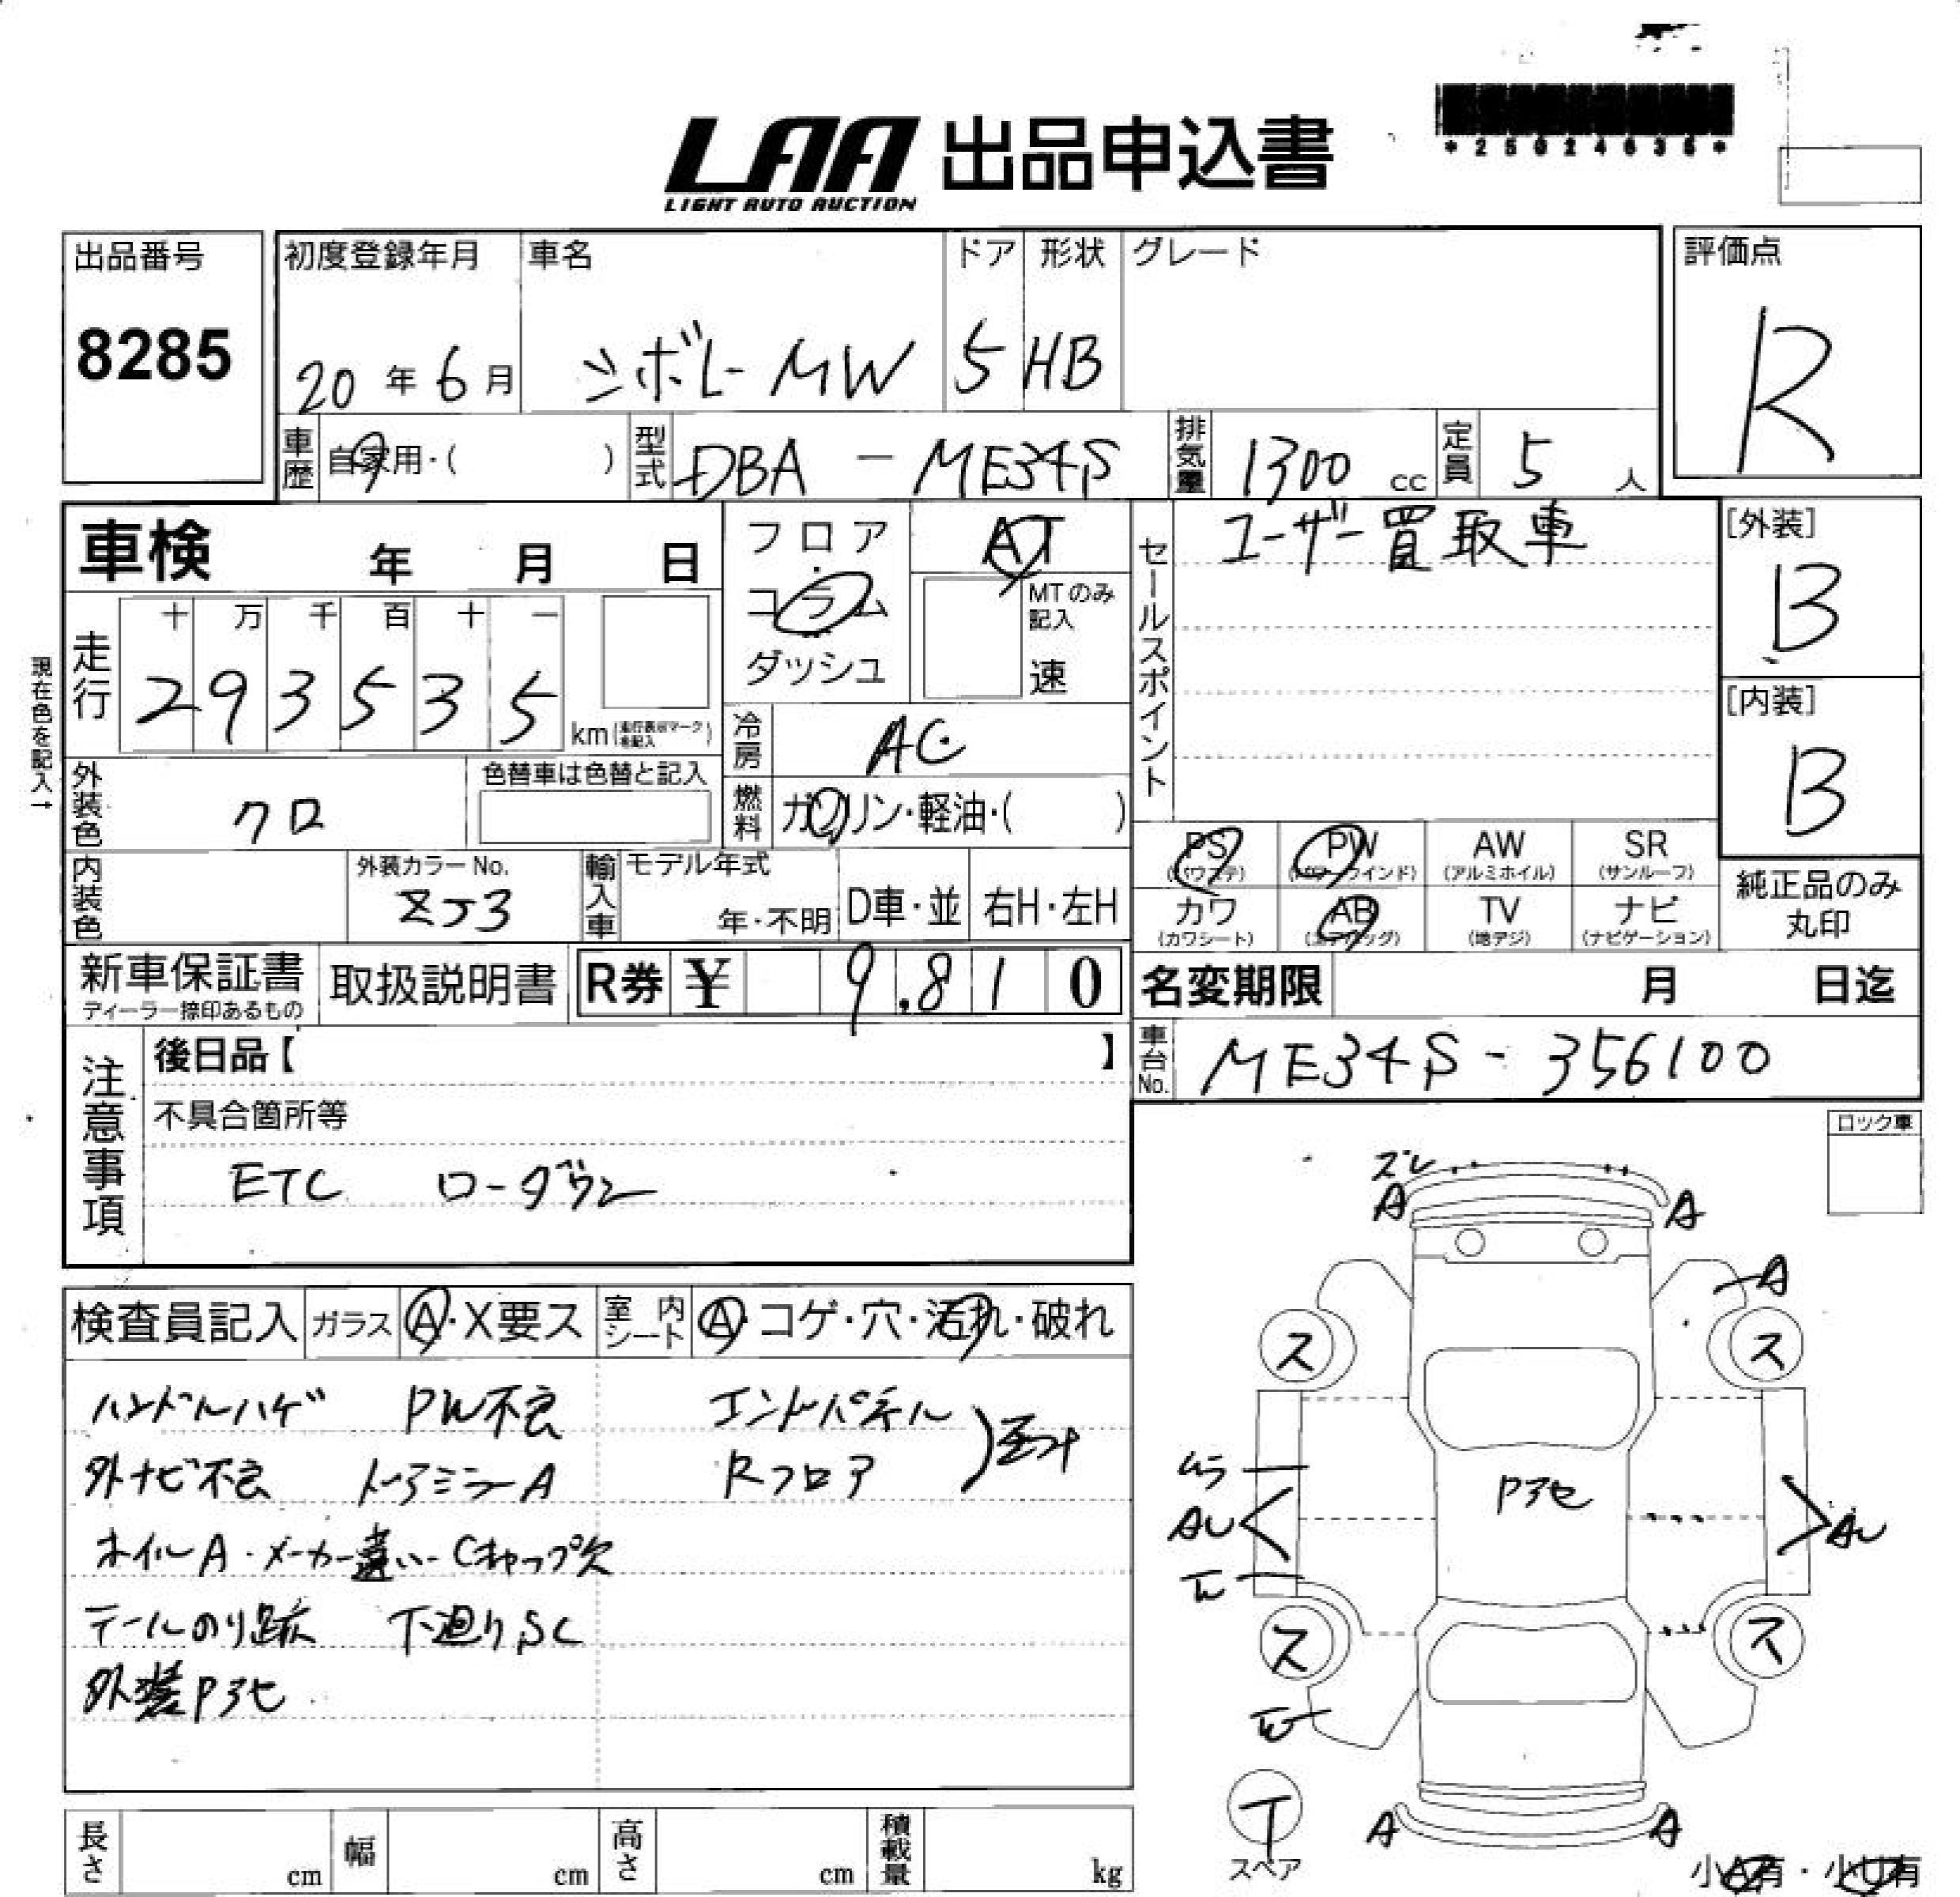 LAA 出品申込書
LIGHT AUTO AUCTION
出品番号
8285
初度登録年月
20年6月
車名
シボレーMW
ドア
5
形状
HB
グレード
評価点
R
車歴
自家用・( )
型式
DBA - ME34S
排気量
1300 cc
定員
5 人
車検 年 月 日
フロア
コラム
ダッシュ
AT
MTのみ記入
速
セールスポイント
ユーザー買取車
[外装]
B
[内装]
B
現在色を記入→
走行
十 万 千 百 十 一
2 9 3 5 3 5
km
冷房
AC
外装色
クロ
色替車は色替と記入
燃料
ガソリン・軽油・( )
PS (パワステ)
PW (パワーウインド)
AW (アルミホイル)
SR (サンルーフ)
カワ (カワシート)
AB (エアバッグ)
TV (地デジ)
ナビ (ナビゲーション)
純正品のみ
丸印
内装色
外装カラーNo.
ZJ3
輸入車
モデル年式
年・不明
D車・並
右H・左H
新車保証書
ディーラー捺印あるもの
取扱説明書
R券 ¥ 9,810
名変期限 月 日迄
車台No.
ME34S - 356100
注意事項
後日品【 】
不具合箇所等
ETC ローダウン
ロック車
検査員記入
ガラス
A・X要ス
室内シート
A・コゲ・穴・汚れ・破れ
ハンドルハゲ PW不良 エンドパネル
外ナビ不良 ドアミラーA Rフロア
ホイルA・メーカー違い・Cキャップ欠
テールのり跡 下廻りSC
外装Pアセ
ズレ
A A
A
ス ス
ムラ
Pアセ
AU AU
ス ス
T
スペア
A A
長さ cm
幅 cm
高さ cm
積載量 kg
小A有・小U有